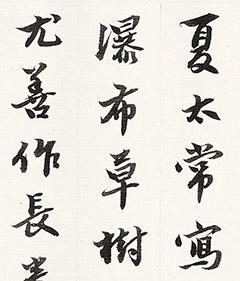 夏太常寫
瀑布草樹
尤善作長